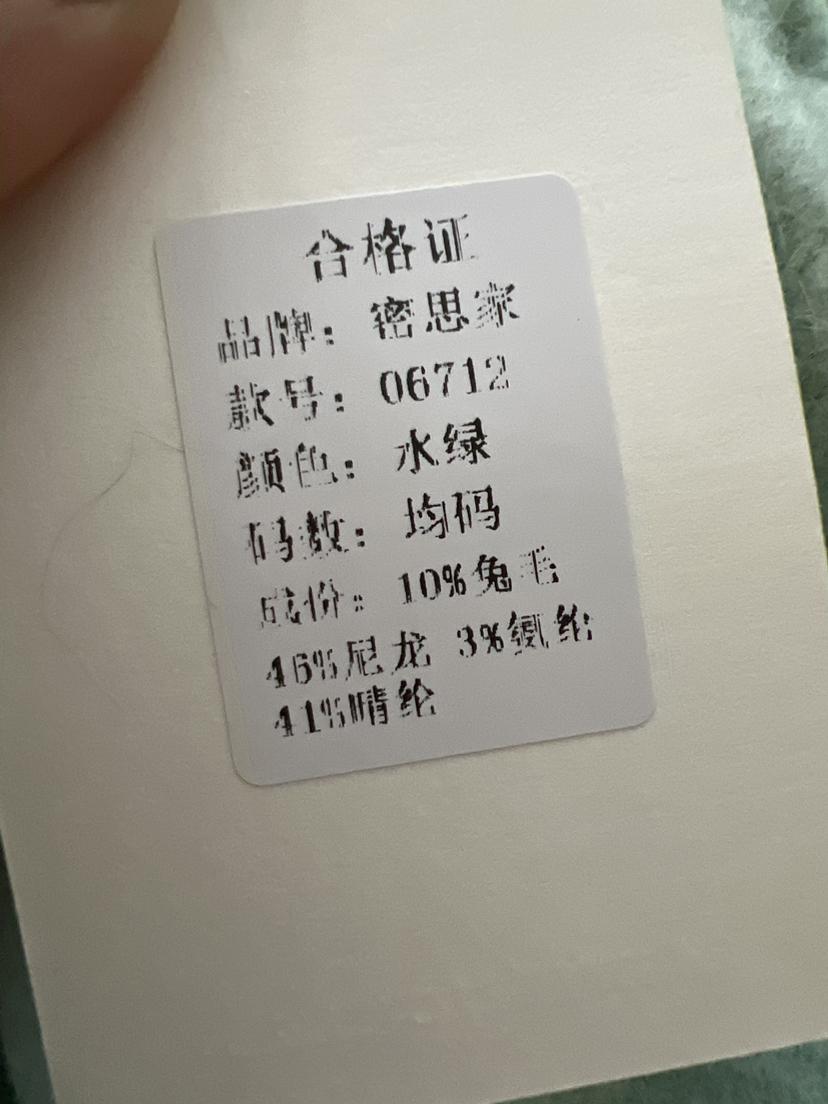 合格证
品牌：密思家
款号：06712
颜色：水绿
码数：均码
成份：10%兔毛
46%尼龙 3%氨纶
41%晴纶